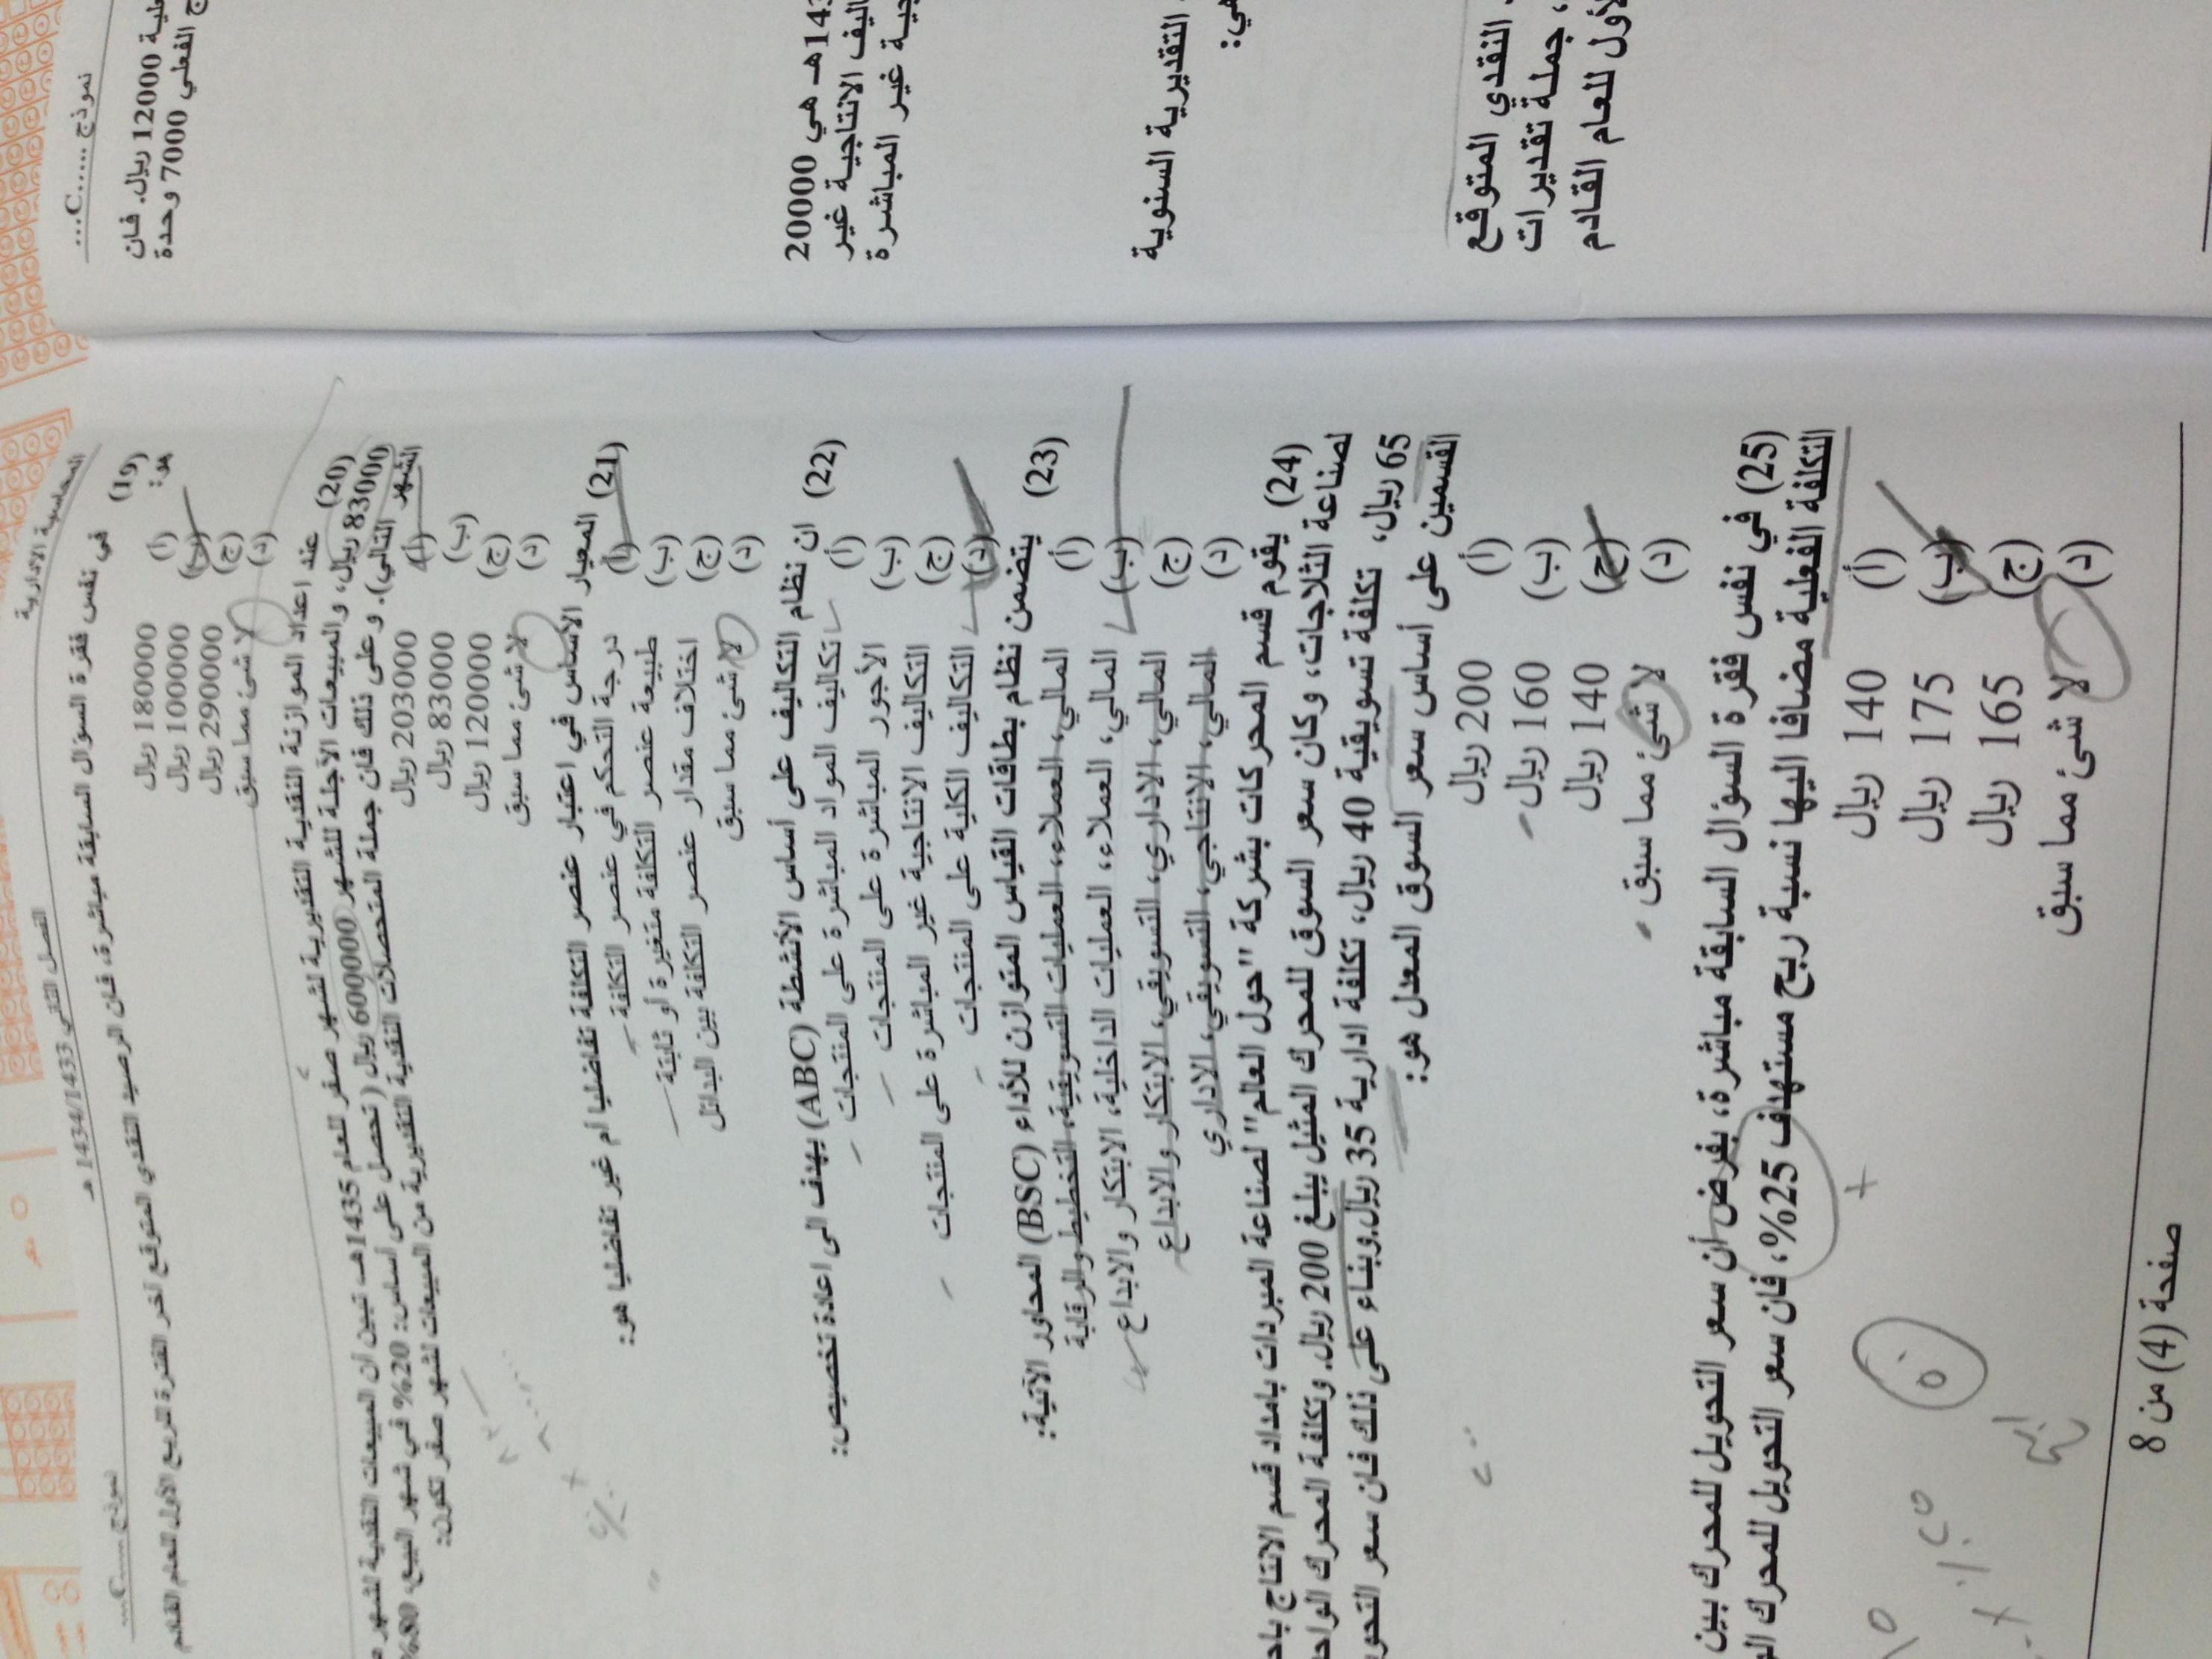 المحاسبة الادارية
الفصل الثاني 1434/1433 هـ
نموذج ...C...
(19) في نفس فقرة السؤال السابقة مباشرة، فان الرصيد النقدي المتوقع آخر الفترة للربع الأول للعام القادم
هو:
(أ) 180000 ريال
(ب) 100000 ريال
(ج) 290000 ريال
(د) لا شئ مما سبق
(20) عند اعداد الموازنة النقدية التقديرية لشهر صفر للعام 1435هـ تبين أن المبيعات النقدية لشهر
83000 ريال، والمبيعات الآجلة للشهر 600000 ريال (تحصل على أساس: 20% في شهر البيع، 80%
الشهر التالي). وعلى ذلك فان جملة المتحصلات النقدية التقديرية من المبيعات لشهر صفر تكون:
(أ) 203000 ريال
(ب) 83000 ريال
(ج) 120000 ريال
(د) لا شئ مما سبق
(21) المعيار الأساس في اعتبار عنصر التكلفة تفاضليا أم غير تفاضليا هو:
(أ) درجة التحكم في عنصر التكلفة
(ب) طبيعة عنصر التكلفة متغيرة أو ثابتة
(ج) اختلاف مقدار عنصر التكلفة بين البدائل
(د) لا شئ مما سبق
(22) ان نظام التكاليف على أساس الأنشطة (ABC) يهدف الى اعادة تخصيص:
(أ) تكاليف المواد المباشرة على المنتجات
(ب) الأجور المباشرة على المنتجات
(ج) التكاليف الانتاجية غير المباشرة على المنتجات
(د) التكاليف الكلية على المنتجات
(23) يتضمن نظام بطاقات القياس المتوازن للأداء (BSC) المحاور الآتية:
(أ) المالي، العملاء، العمليات التسويقية، التخطيط والرقابة
(ب) المالي، العملاء، العمليات الداخلية، الابتكار والابداع
(ج) المالي، الاداري، التسويقي، الابتكار والابداع
(د) المالي، الانتاجي، التسويقي، الاداري
(24) يقوم قسم المحركات بشركة "حول العالم" لصناعة المبردات بامداد قسم الانتاج
لصناعة الثلاجات، وكان سعر السوق للمحرك المثيل يبلغ 200 ريال. وتكلفة المحرك
65 ريال، تكلفة تسويقية 40 ريال، تكلفة ادارية 35 ريال. وبناء على ذلك فان سعر
القسمين على أساس سعر السوق المعدل هو:
(أ) 200 ريال
(ب) 160 ريال
(ج) 140 ريال
(د) لا شئ مما سبق
(25) في نفس فقرة السؤال السابقة مباشرة، بفرض أن سعر التحويل للمحرك بين
التكلفة الفعلية مضافا اليها نسبة ربح مستهدف 25%، فان سعر التحويل للمحرك
(أ) 140 ريال
(ب) 175 ريال
(ج) 165 ريال
(د) لا شئ مما سبق
صفحة (4) من 8
نموذج .....C...
12000 ريال. فان
الفعلي 7000 وحدة
هـ هي 20000
اليف الانتاجية غير
جية غير المباشرة
التقديرية السنوية
هي:
النقدي المتوقع
، جملة تقديرات
لأول للعام القادم